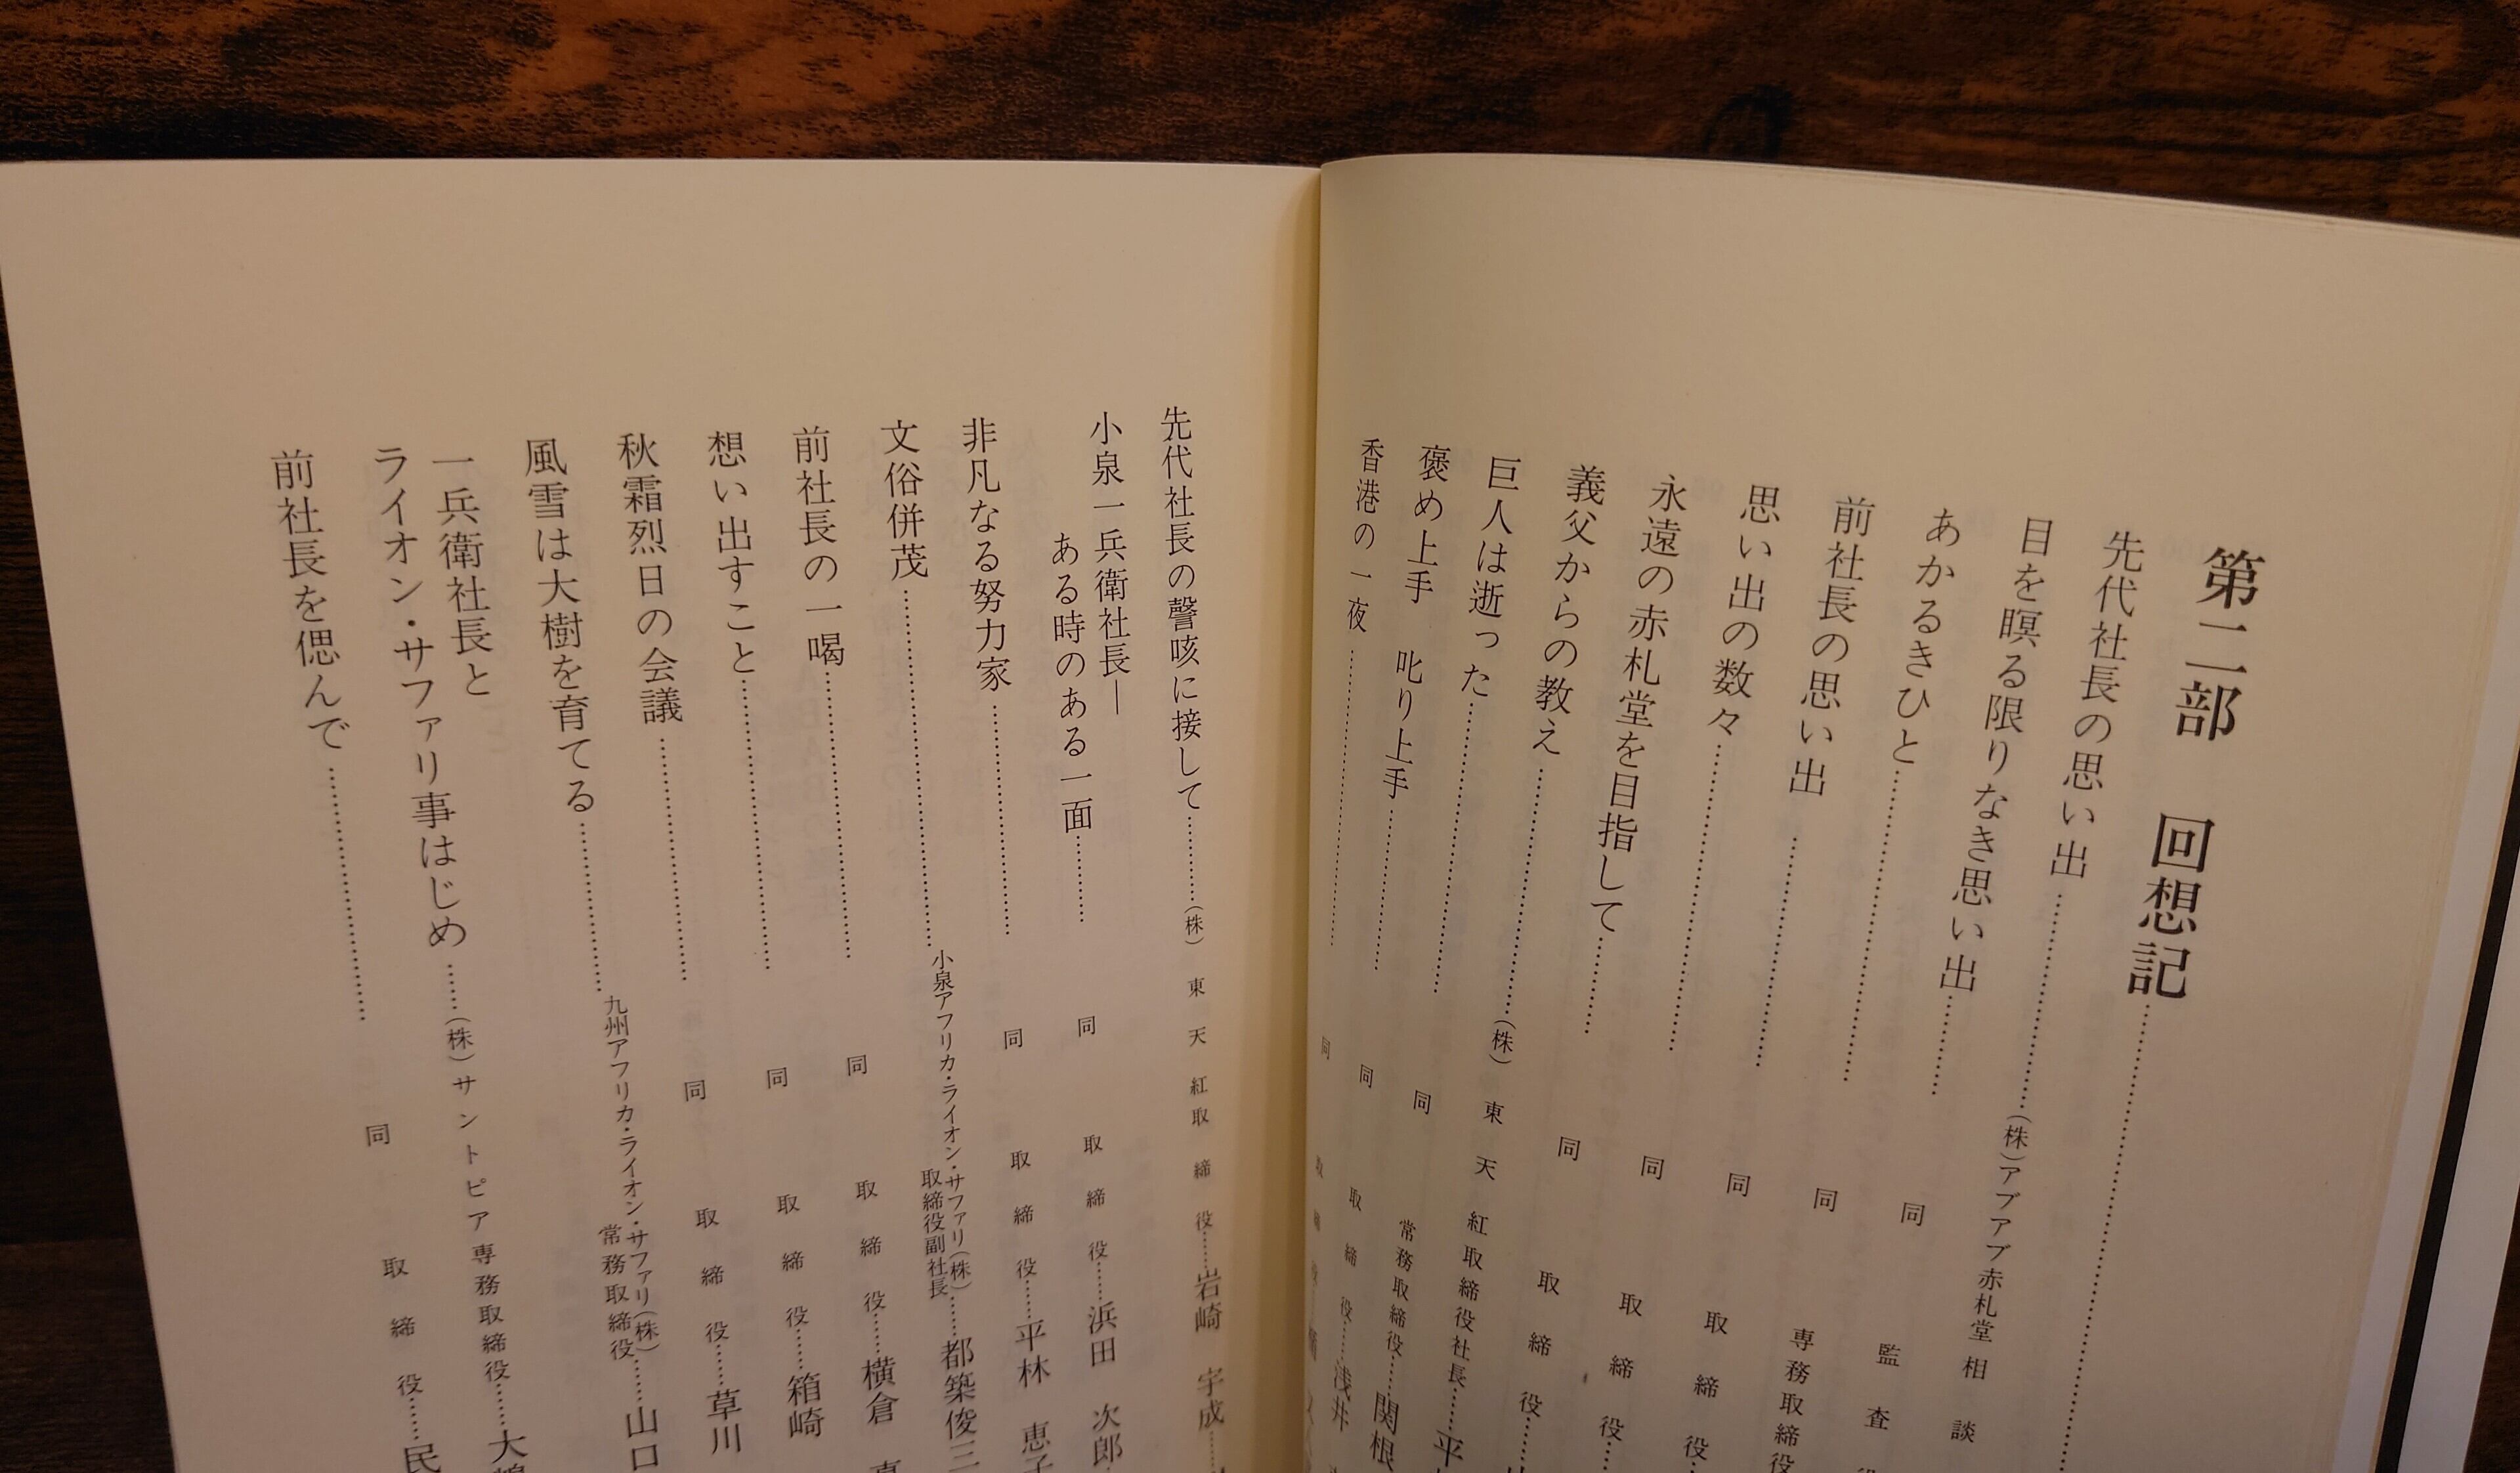 第二部　回想記……
先代社長の思い出……(株)アブアブ赤札堂 相談
目を瞑る限りなき思い出……同　監査
あかるきひと……同　専務取締役
前社長の思い出……同　取締役
思い出の数々……同　取締役
永遠の赤札堂を目指して……同　取締役……
義父からの教え……(株)東天紅 取締役社長……平
巨人は逝った……同　常務取締役……関根
褒め上手　叱り上手……同　取締役……浅井
香港の一夜……同　取締役……
先代社長の謦咳に接して……(株)東天紅 取締役……岩崎　宇成……
小泉一兵衛社長―
ある時のある一面……同　取締役……浜田　次郎
非凡なる努力家……同　取締役……平林　恵子
文俗併茂……小泉アフリカ・ライオン・サファリ(株)
取締役副社長……都築俊三
前社長の一喝……同　取締役……横倉
想い出すこと……同　取締役……箱崎
秋霜烈日の会議……同　取締役……草川
風雪は大樹を育てる……九州アフリカ・ライオン・サファリ(株)
常務取締役……山口
一兵衛社長と
ライオン・サファリ事はじめ……(株)サントピア 専務取締役……大
前社長を偲んで……同　取締役……民